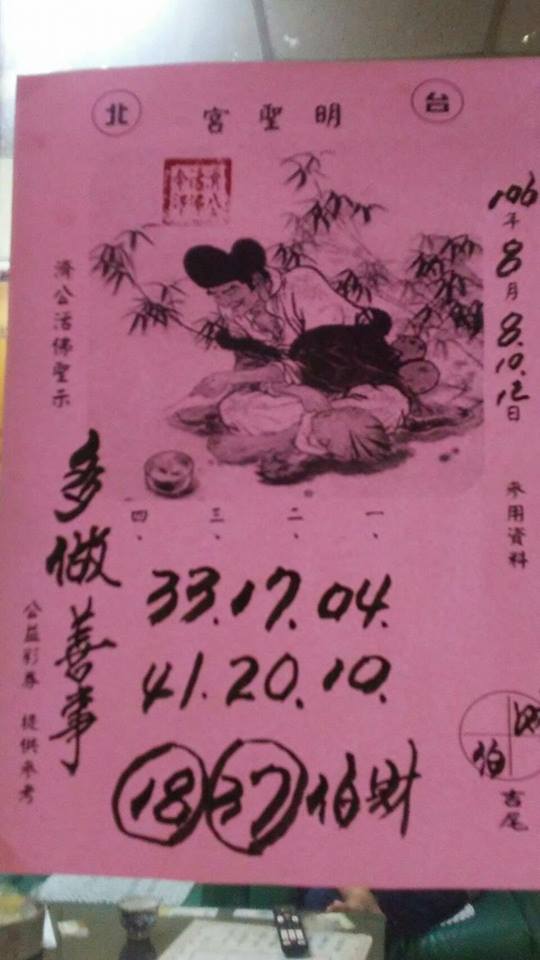 台北
明聖宮
濟公活佛
106年8月8.10.12日
參用資料
濟公活佛聖示
一、
二、
三、
四、
多做善事
33.17.04.
41.20.10.
18 37 伯財
公益彩券 提供參考
伯
吉尾